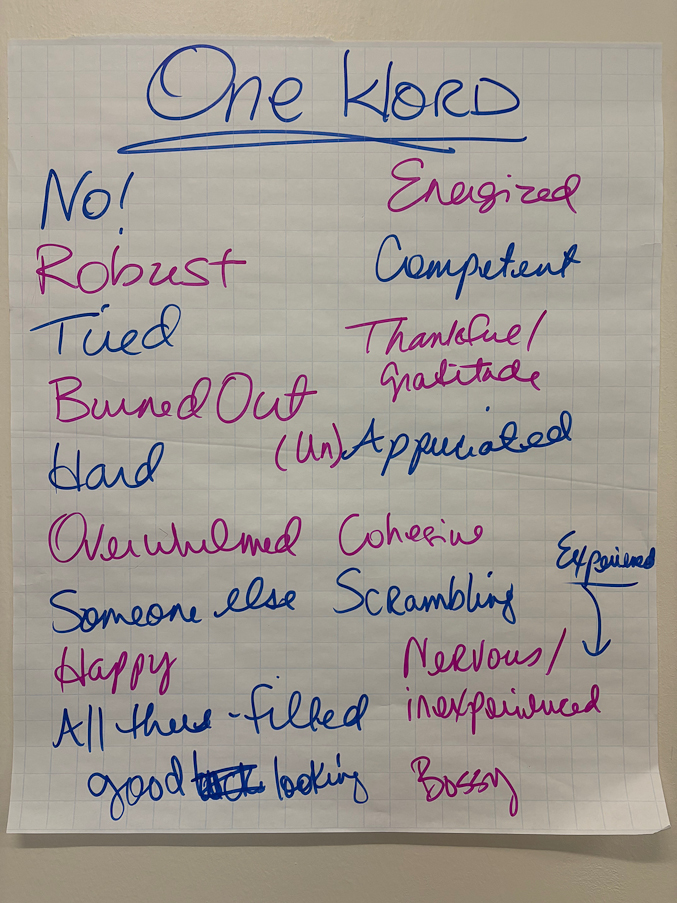 One WORD
No!
Robust
Tired
Burned Out
Hard
Overwhelmed
Someone else
Happy
All three - filled
good looking
Energized
Competent
Thankful/
gratitude
(Un)Appreciated
Cohesive
Scrambling
Experienced
Nervous/
inexperienced
Bossy